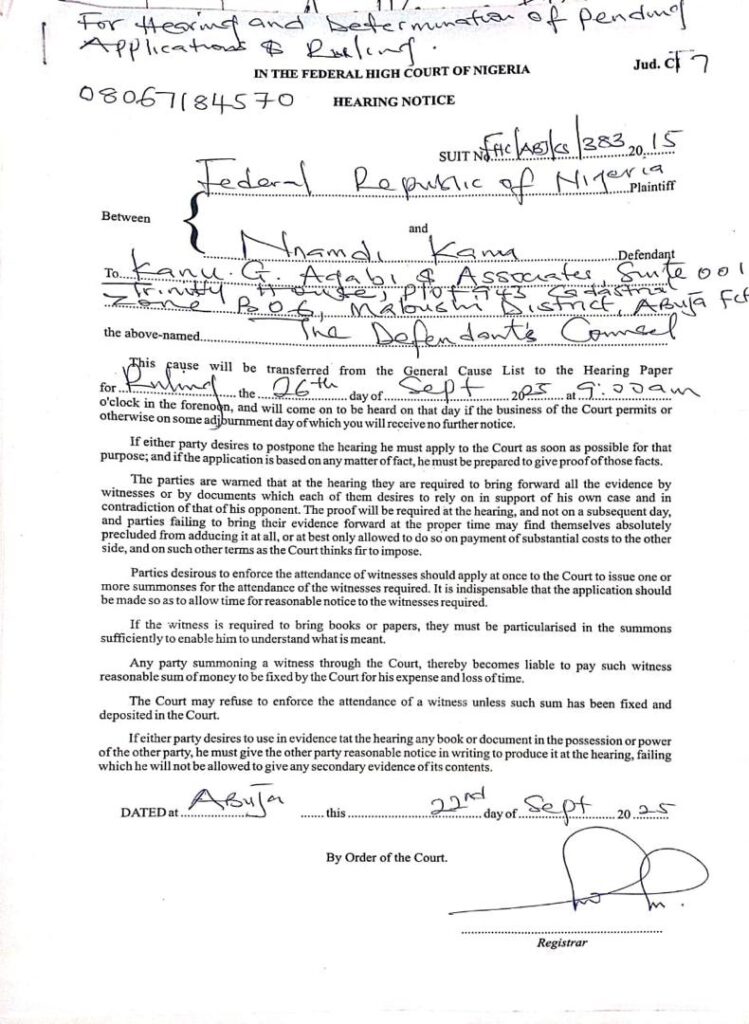 For Hearing and Determination of pending
Applications & Ruling.
IN THE FEDERAL HIGH COURT OF NIGERIA
Jud. Ct 7
08067184570
HEARING NOTICE
SUIT No FHC/ABJ/CS/383 20 15
Federal Republic of Nigeria Plaintiff
Between
and
Nnamdi Kanu Defendant
To Kanu. G. Agabi & Associates, Suite 001
Trinity House, Plot 943 Cadastral
Zone B06, Mabushi District, Abuja Fct
the above-named The Defendant's Counsel
This cause will be transferred from the General Cause List to the Hearing Paper
for Ruling the 26th day of Sept 2025 at 9:00am
o'clock in the forenoon, and will come on to be heard on that day if the business of the Court permits or
otherwise on some adjburnment day of which you will receive no further notice.
If either party desires to postpone the hearing he must apply to the Court as soon as possible for that
purpose; and if the application is based on any matter of fact, he must be prepared to give proof of those facts.
The parties are warned that at the hearing they are required to bring forward all the evidence by
witnesses or by documents which each of them desires to rely on in support of his own case and in
contradiction of that of his opponent. The proof will be required at the hearing, and not on a subsequent day,
and parties failing to bring their evidence forward at the proper time may find themselves absolutely
precluded from adducing it at all, or at best only allowed to do so on payment of substantial costs to the other
side, and on such other terms as the Court thinks fir to impose.
Parties desirous to enforce the attendance of witnesses should apply at once to the Court to issue one or
more summonses for the attendance of the witnesses required. It is indispensable that the application should
be made so as to allow time for reasonable notice to the witnesses required.
If the witness is required to bring books or papers, they must be particularised in the summons
sufficiently to enable him to understand what is meant.
Any party summoning a witness through the Court, thereby becomes liable to pay such witness
reasonable sum of money to be fixed by the Court for his expense and loss of time.
The Court may refuse to enforce the attendance of a witness unless such sum has been fixed and
deposited in the Court.
If either party desires to use in evidence tat the hearing any book or document in the possession or power
of the other party, he must give the other party reasonable notice in writing to produce it at the hearing, failing
which he will not be allowed to give any secondary evidence of its contents.
DATED at Abuja this 22nd day of Sept 20 25
By Order of the Court.
Registrar